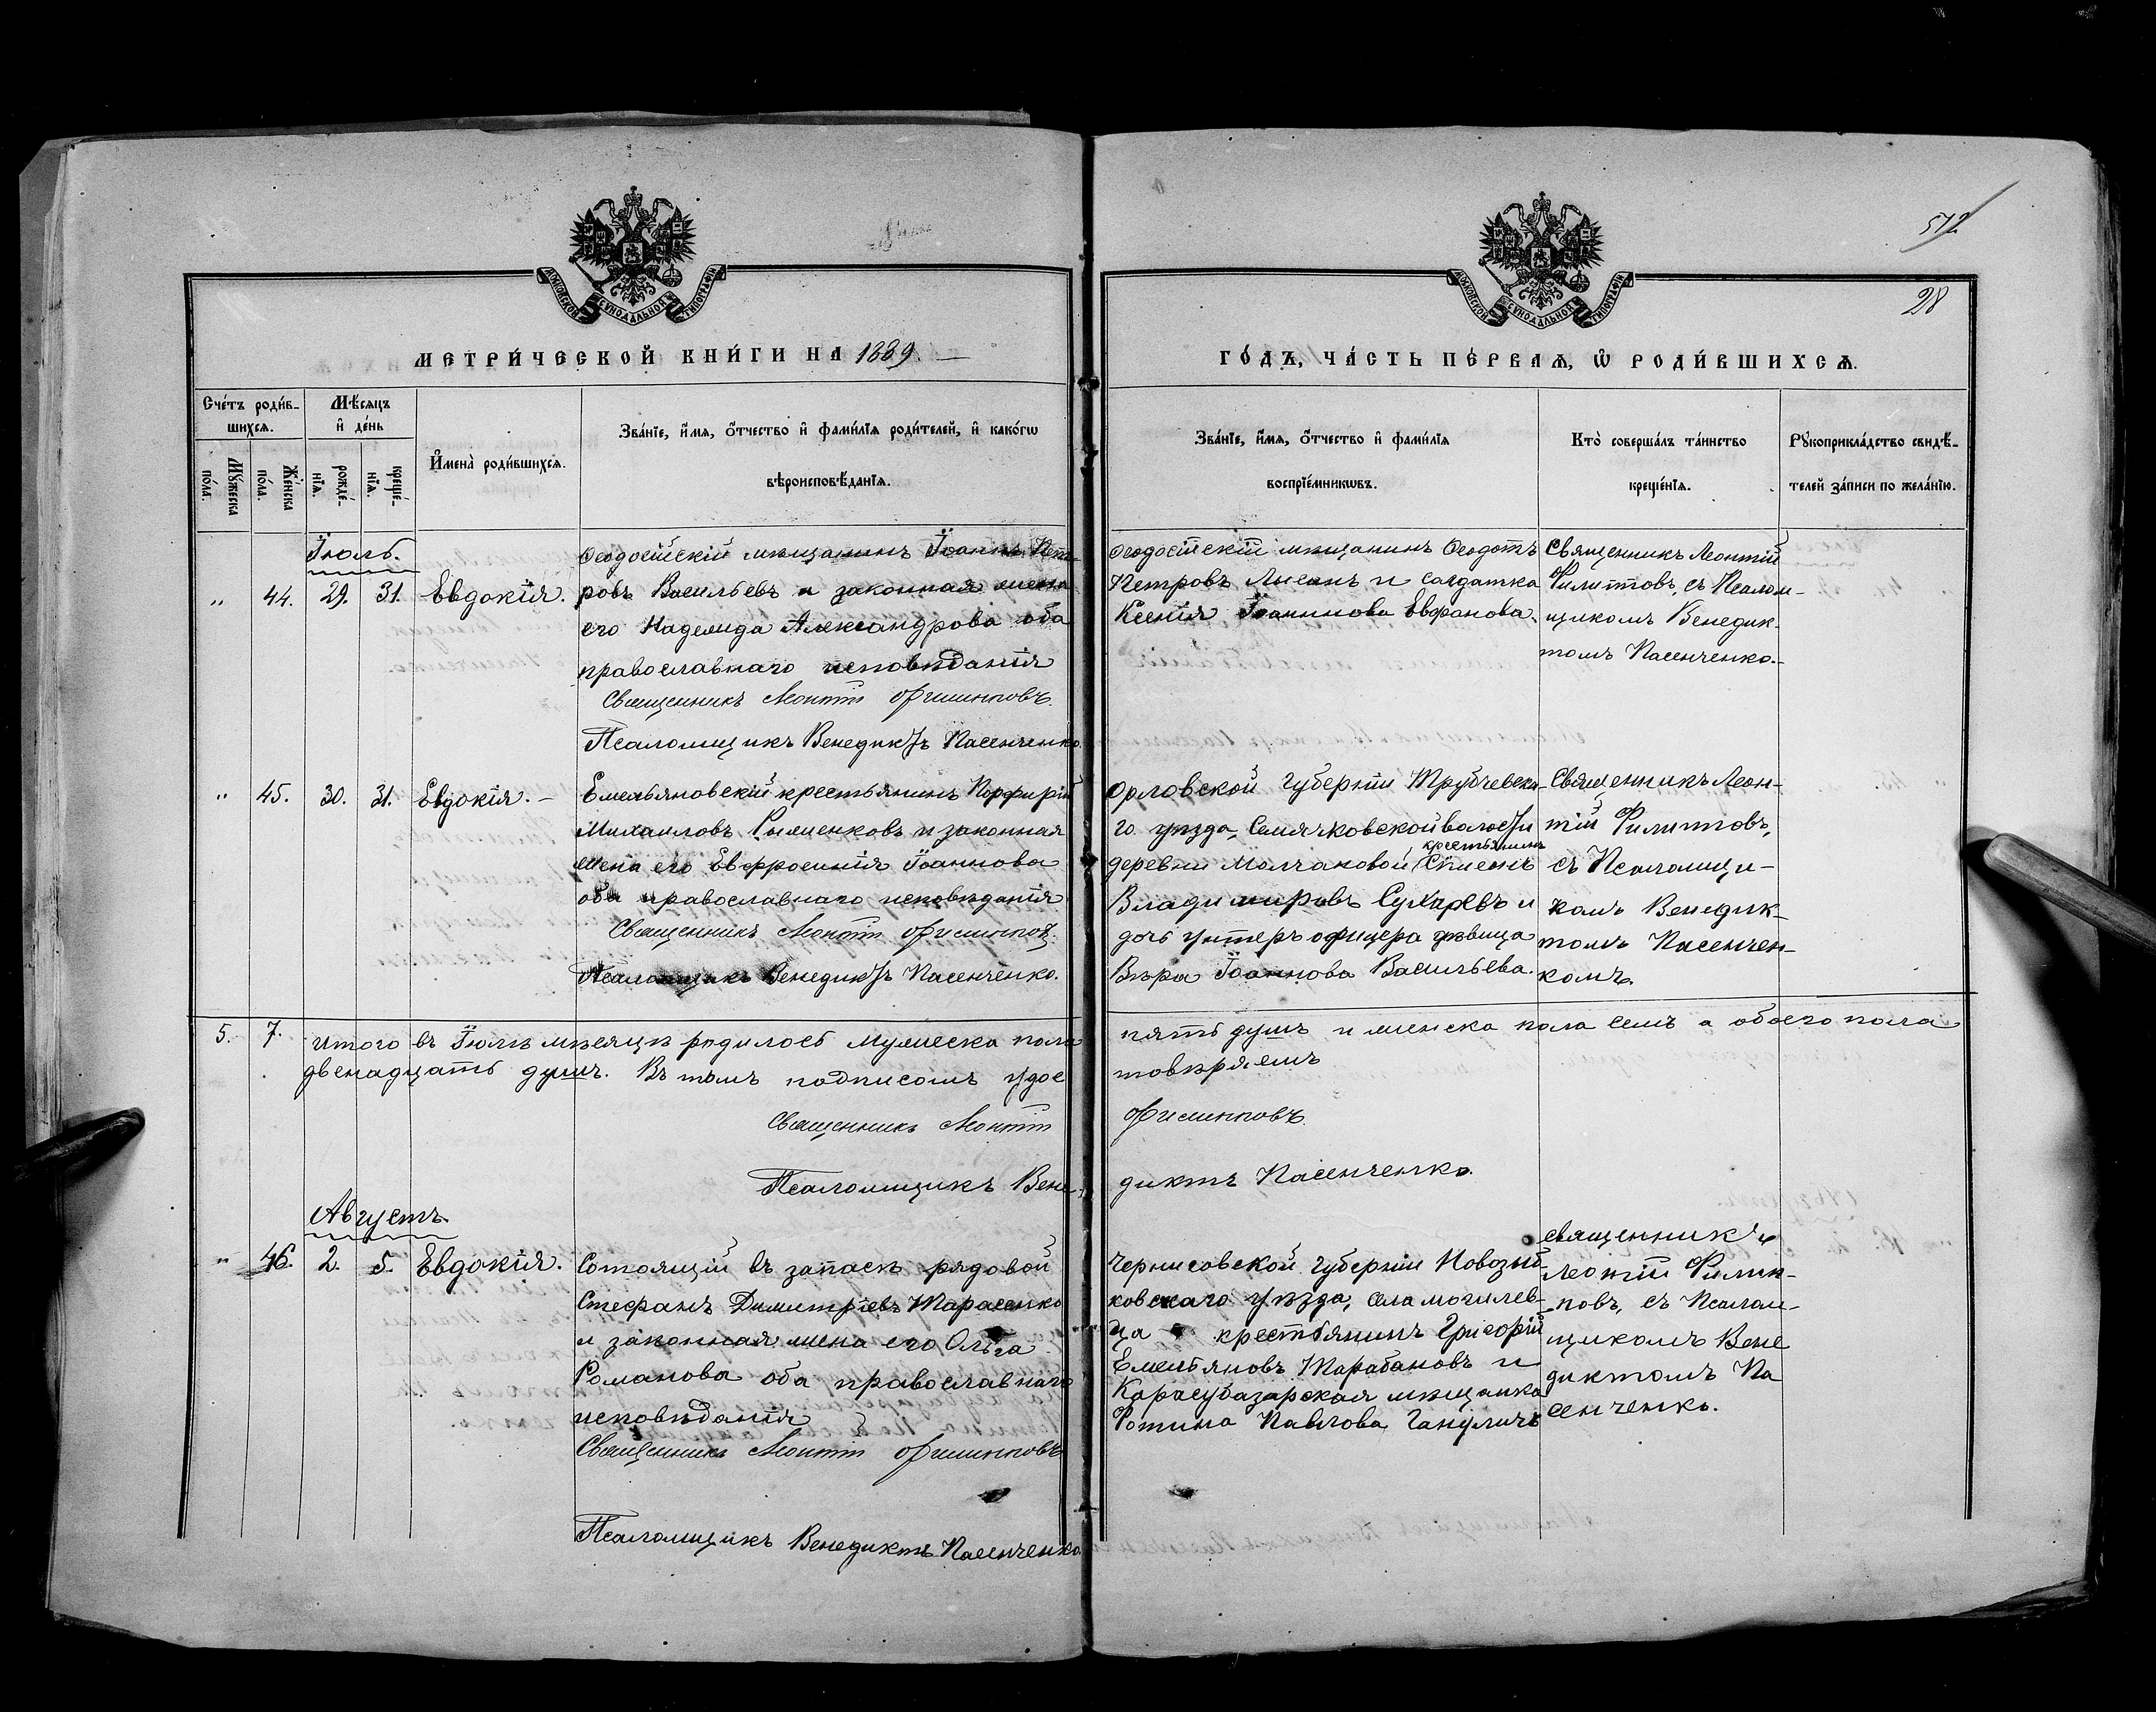 512
28
МОСКОВСКОЙ СѴНОДАЛЬНОЙ ТИПОГРАФІИ
МОСКОВСКОЙ СѴНОДАЛЬНОЙ ТИПОГРАФІИ
МЕТРИ́ЧЕСКОЙ КНИ́ГИ НА 1889.
ГО́ДЪ, ЧА́СТЬ ПЕ́РВАѦ, Ѽ РОДИ́ВШИХСѦ.
Сче́тъ роди́в-
шихсѧ.
Мꙋ́жеска
по́ла.
Же́нска
по́ла.
Мѣ́сѧцъ
и҆ де́нь
рожде́-
нїѧ.
креще́-
нїѧ.
И҆мена̀ роди́вшихсѧ.
Зва́нїе, и҆́мѧ, ѻ҆́тчество и҆ фами́лїѧ роди́телей, и҆ како́гѡ
вѣроисповѣ́данїѧ.
Зва́нїе, и҆́мѧ, ѻ҆́тчество и҆ фами́лїѧ
воспрїе́мникѡвъ.
Кто̀ соверша́лъ та́инство
креще́нїѧ.
Рꙋкоприкла́дство свидѣ́-
телей за́писи по жела́нїю.
Іюль.
„ 44. 29. 31. Евдокія.
Ѳеодосійскій мѣщанинъ Іоаннъ Пет-
ровъ Васильевъ и законная жена
его Надежда Александрова оба
православнаго исповѣданія
Священникъ Леонтій Филипповъ.
Псаломщикъ Венедиктъ Пасенченко.
Ѳеодосійскій мѣщанинъ Ѳеодотъ
Петровъ Лысанъ и солдатка
Ксенія Іоаннова Евфанова.
Священникъ Леонтій
Филипповъ, съ Псалом-
щикомъ Венедик-
томъ Пасенченко.
„ 45. 30. 31. Евдокія.
Емельяновскій крестьянинъ Порфирій
Михаиловъ Рыженковъ и законная
жена его Евфросинія Іоаннова
оба православнаго исповѣданія
Священникъ Леонтій Филипповъ.
Псаломщикъ Венедиктъ Пасенченко.
Орловской Губерніи Трубчевска-
го уѣзда, Семячковской волости
деревни Молчановой крестьянинъ Сѵмеонъ
Владимировъ Сухаревъ и
дочь унтеръ офицера дѣвица
Вѣра Іоаннова Васильева.
Священникъ Леон-
тій Филипповъ,
съ Псаломщи-
комъ Венедик-
томъ Пасенчен-
комъ.
5. 7. Итого въ Іюлѣ мѣсяцѣ родилось мужеска пола пять душъ и женска пола семь а обоего пола
двенадцать душъ. Въ томъ подписомъ удос товѣряемъ
Священникъ Леонтій Филипповъ.
Псаломщикъ Вене- диктъ Пасенченко.
Августъ.
„ 46. 2. 5. Евдокія.
Состоящій въ запасѣ рядовой
Стефанъ Димитріевъ Тарасенко
и законная жена его Ольга
Романова оба православнаго
исповѣданія
Священникъ Леонтій Филипповъ
Псаломщикъ Венедиктъ Пасенченко.
Черниговской Губерніи Новозыб-
ковскаго уѣзда, села Могилев-
ца крестьянинъ Григорій
Емельяновъ Тарабановъ и
Карасубазарская мѣщанка
Фотина Павлова Гануличъ
Священникъ
Леонтій Филип-
повъ, съ Псалом-
щикомъ Вене
диктомъ Па
сенченко.